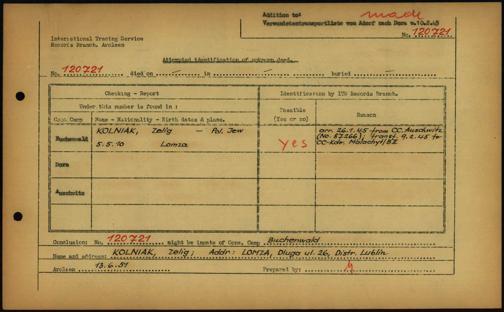 Addition to: made
Verwundetentransportliste von Adorf nach Dora v.10.2.45
No. 120721
International Tracing Service
Records Branch, Arolsen
Attempted identification of unknown dead.
No. 120721 died on - in - buried -
Checking - Report
Identification by ITS Records Branch.
Under this number is found in :
Conc.Camp Name - Nationality - Birth dates & place.
Possible (You or no)
Reason
Buchenwald KOLNIAK, Zelig - Pol. Jew
5.5.10 Lomza
yes
arr. 26.1.45 from CC. Auschwitz
(No. 87266); transf. 9.2.45 to
CC-Kdo. Malachyt/BZ
Dora
Auschwitz
Conclusion: No. 120721 might be inmate of Conc. Camp Buchenwald
Name and address: KOLNIAK, Zelig; Addr: LOMZA, Dluga ul. 26, Distr. Lublin
Arolsen 13.6.51 Prepared by: